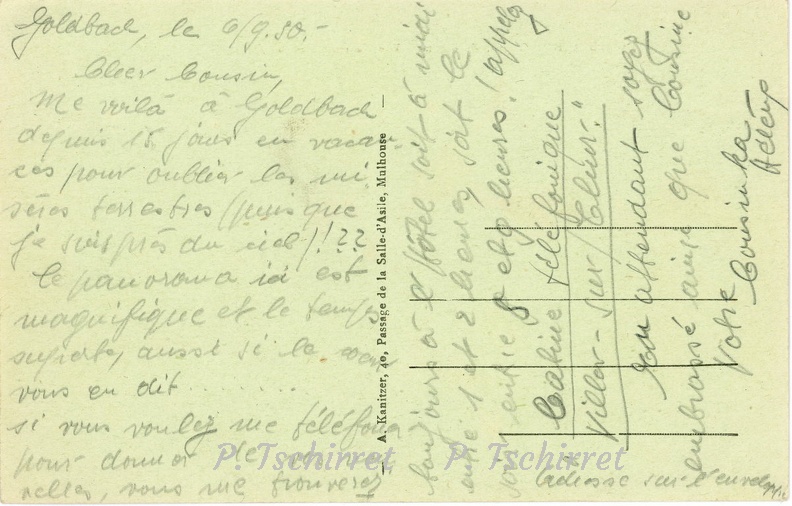 Goldbach, le 6/9.50.-
Cher Cousin,
Me voilà à Goldbach
depuis 15 jours en vacan-
ces pour oublier les mi
sères terrestres (puis que
je suis près du ciel)!??
le panorama ici est
magnifique et le temps
superbe, aussi si le cœur
vous en dit . . . . . . .
si vous voulez me téléfoner
pour donner de
velles, vous me trouverez
A. Kanitzer, 40, Passage de la Salle-d'Asile, Mulhouse
toujours à l'hôtel soit à midi
entre 1 et 2 heures, soit le
soir entre 8 et 9 heures! appelez
Cabine téléfonique
Viller-sur
En attendant soyez
embrassé ainsi que Cousine
Votre
Cousinka
Adresse sur l'enveloppe
P. Tschirret P. Tschirret